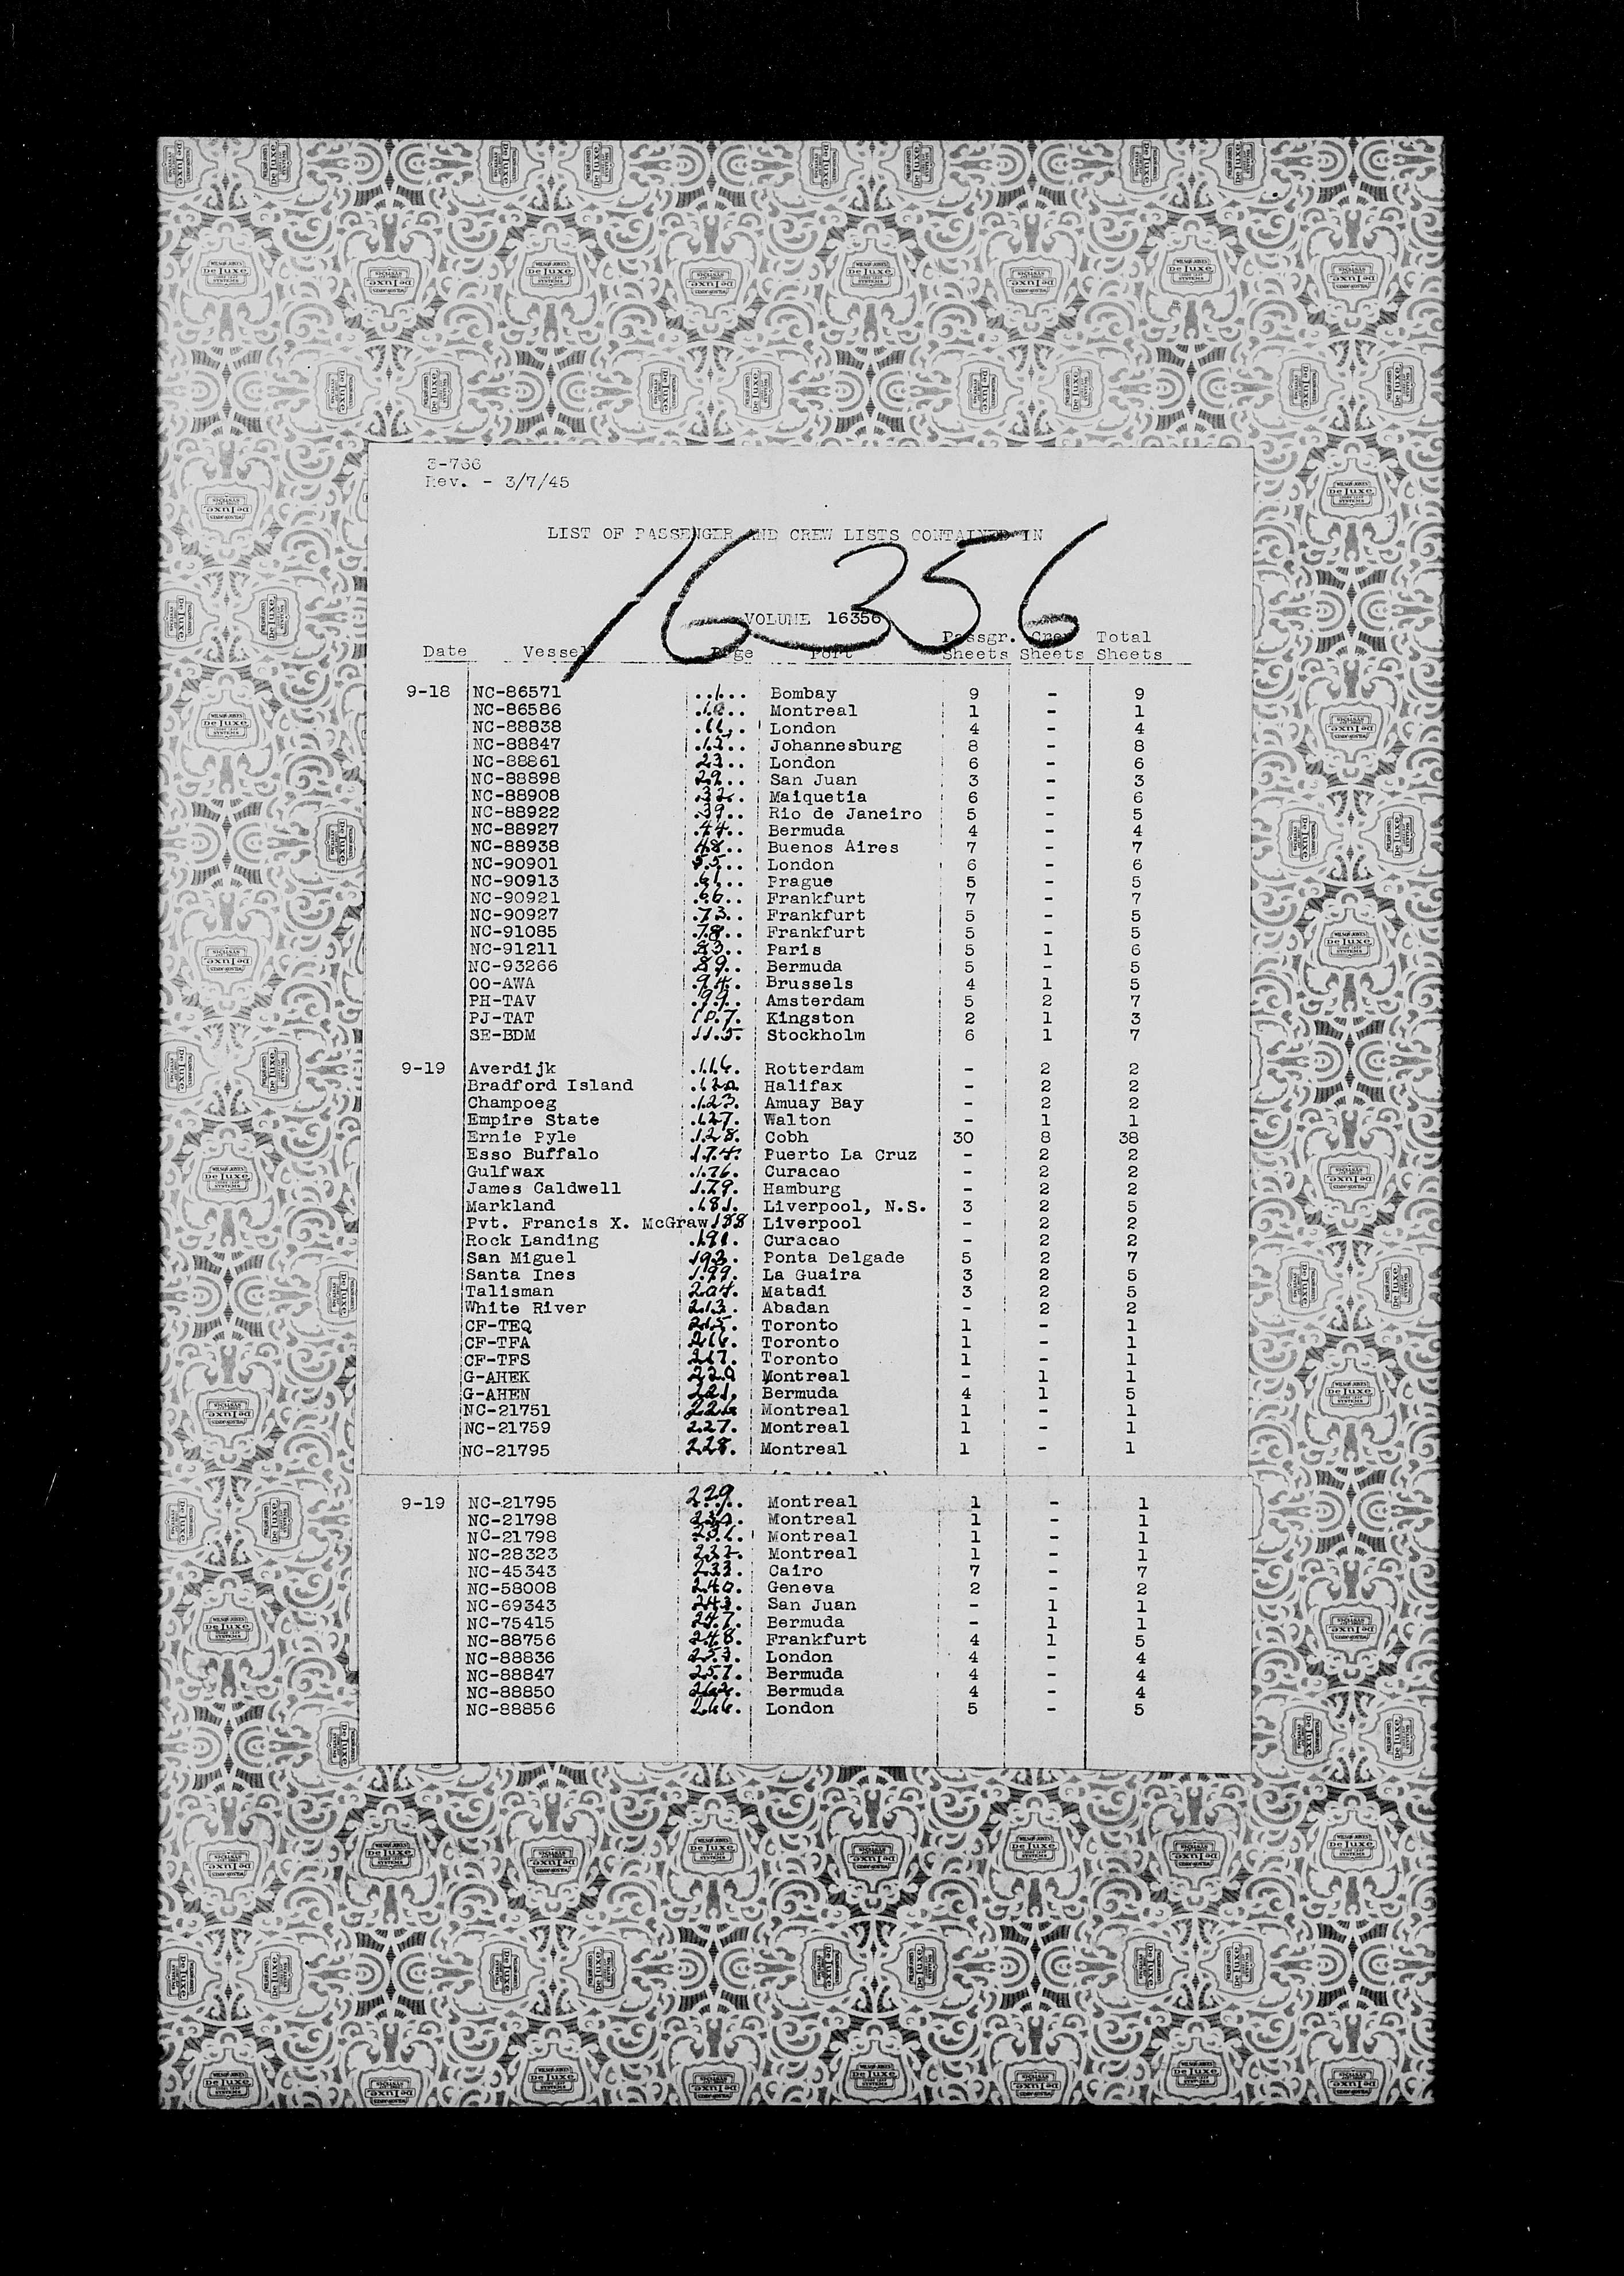 3-766
Rev. - 3/7/45
LIST OF PASSENGER AND CREW LISTS CONTAINED IN
16356
VOLUME 16356
Passgr. Crew Total
Date Vessel Page Port Sheets Sheets Sheets
9-18 NC-86571 1 Bombay 9 - 9
NC-86586 10 Montreal 1 - 1
NC-88838 11 London 4 - 4
NC-88847 15 Johannesburg 8 - 8
NC-88861 23 London 6 - 6
NC-88898 29 San Juan 3 - 3
NC-88908 32 Maiquetia 6 - 6
NC-88922 39 Rio de Janeiro 5 - 5
NC-88927 44 Bermuda 4 - 4
NC-88938 48 Buenos Aires 7 - 7
NC-90901 55 London 6 - 6
NC-90913 61 Prague 5 - 5
NC-90921 66 Frankfurt 7 - 7
NC-90927 73 Frankfurt 5 - 5
NC-91085 78 Frankfurt 5 - 5
NC-91211 83 Paris 5 1 6
NC-93266 89 Bermuda 5 - 5
OO-AWA 94 Brussels 4 1 5
PH-TAV 99 Amsterdam 5 2 7
PJ-TAT 107 Kingston 2 1 3
SE-BDM 115 Stockholm 6 1 7
9-19 Averdijk 116 Rotterdam - 2 2
Bradford Island 120 Halifax - 2 2
Champoeg 123 Amuay Bay - 2 2
Empire State 127 Walton - 1 1
Ernie Pyle 128 Cobh 30 8 38
Esso Buffalo 174 Puerto La Cruz - 2 2
Gulfwax 176 Curacao - 2 2
James Caldwell 179 Hamburg - 2 2
Markland 181 Liverpool, N.S. 3 2 5
Pvt. Francis X. McGraw 188 Liverpool - 2 2
Rock Landing 191 Curacao - 2 2
San Miguel 193 Ponta Delgade 5 2 7
Santa Ines 199 La Guaira 3 2 5
Talisman 204 Matadi 3 2 5
White River 213 Abadan - 2 2
CF-TEQ 215 Toronto 1 - 1
CF-TFA 216 Toronto 1 - 1
CF-TFS 217 Toronto 1 - 1
G-AHEK 220 Montreal - 1 1
G-AHEN 221 Bermuda 4 1 5
NC-21751 226 Montreal 1 - 1
NC-21759 227 Montreal 1 - 1
NC-21795 228 Montreal 1 - 1
9-19 NC-21795 229 Montreal 1 - 1
NC-21798 230 Montreal 1 - 1
NC-21798 231 Montreal 1 - 1
NC-28323 232 Montreal 1 - 1
NC-45343 233 Cairo 7 - 7
NC-58008 240 Geneva 2 - 2
NC-69343 243 San Juan - 1 1
NC-75415 247 Bermuda - 1 1
NC-88756 248 Frankfurt 4 1 5
NC-88836 253 London 4 - 4
NC-88847 257 Bermuda 4 - 4
NC-88850 262 Bermuda 4 - 4
NC-88856 266 London 5 - 5
WILSON-JONES
De Luxe
SYSTEMS